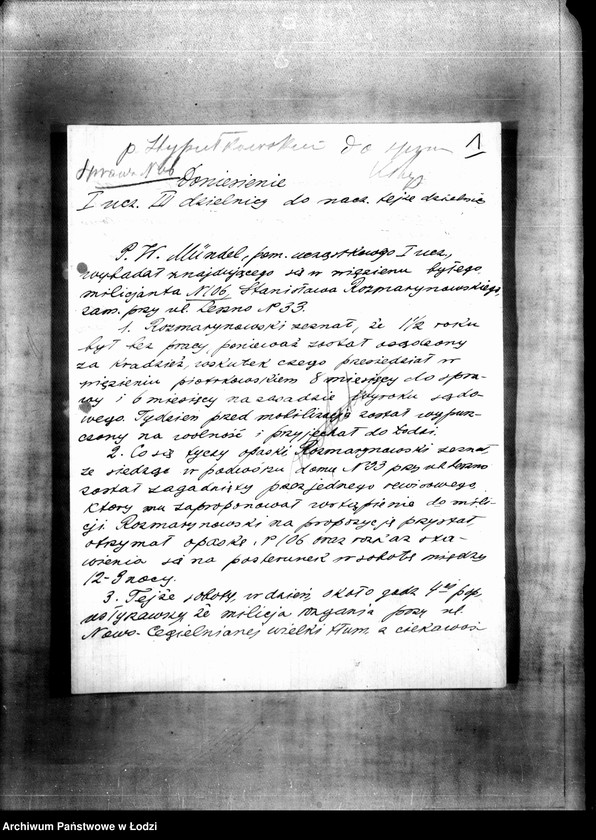 1
do
Sprawa N 106
Doniesienie
I ucz. III dzielnicy do nacz. tejże dzielnic
P. W. Mündel, pom. uczątkowego I ucz,
wybadał znajdującego się w więzieniu byłego
milicjanta N 106, Stanisława Rozmarynowskiego,
zam. przy ul. Leszno N 33.
1. Rozmarynowski zeznał, że 1 1/2 roku
był bez pracy, ponieważ został osądzony
za kradzież, wskutek czego przesiedział w
więzieniu piotrkowskiem 8 miesięcy do spra-
wy i 6 miesięcy na zasadzie wyroku sądo-
wego. Tydzień przed mobilizacją został wypusz-
czony na wolność i przyjechał do Łodzi.
2. Co się tyczy opaski Rozmarynowski zeznał,
że siedząc w podwórzu domu N 33 przy ul. Leszno
został zagadnięty przez jednego rewirowego,
który mu zaproponował wstąpienie do mili-
cji. Rozmarynowski na propozycję przystał
otrzymał opaskę N 106 oraz rozkaz sta-
wienia się na posterunek w sobotę między
12-3 nocy.
3. Tejże soboty, w dzień, około godz 4ej pop,
usłyszawszy, że milicja rozgania przy ul.
Nowo-Cegielnianej wielki tłum z ciekawoś
Archiwum Państwowe w Łodzi